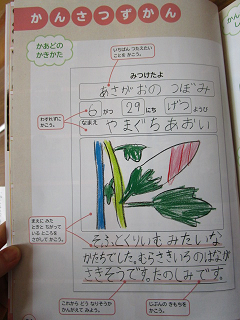 かんさつずかん
かあどの
かきかた
いちばん つたえたい
ことを かこう。
みつけたよ
あさがおの つぼみ
わすれずに
かこう。
6 がつ 29 にち げつ ようび
なまえ やまぐちあおい
まえに みた
ときと ちがって
いる ところを
さがして かこう。
そふとくりいむ みたいな
かたちでした。むらさきいろのはなが
さきそうです。たのしみです。
これから どう なりそうか
かんがえて みよう。
じぶんの きもちを
かこう。